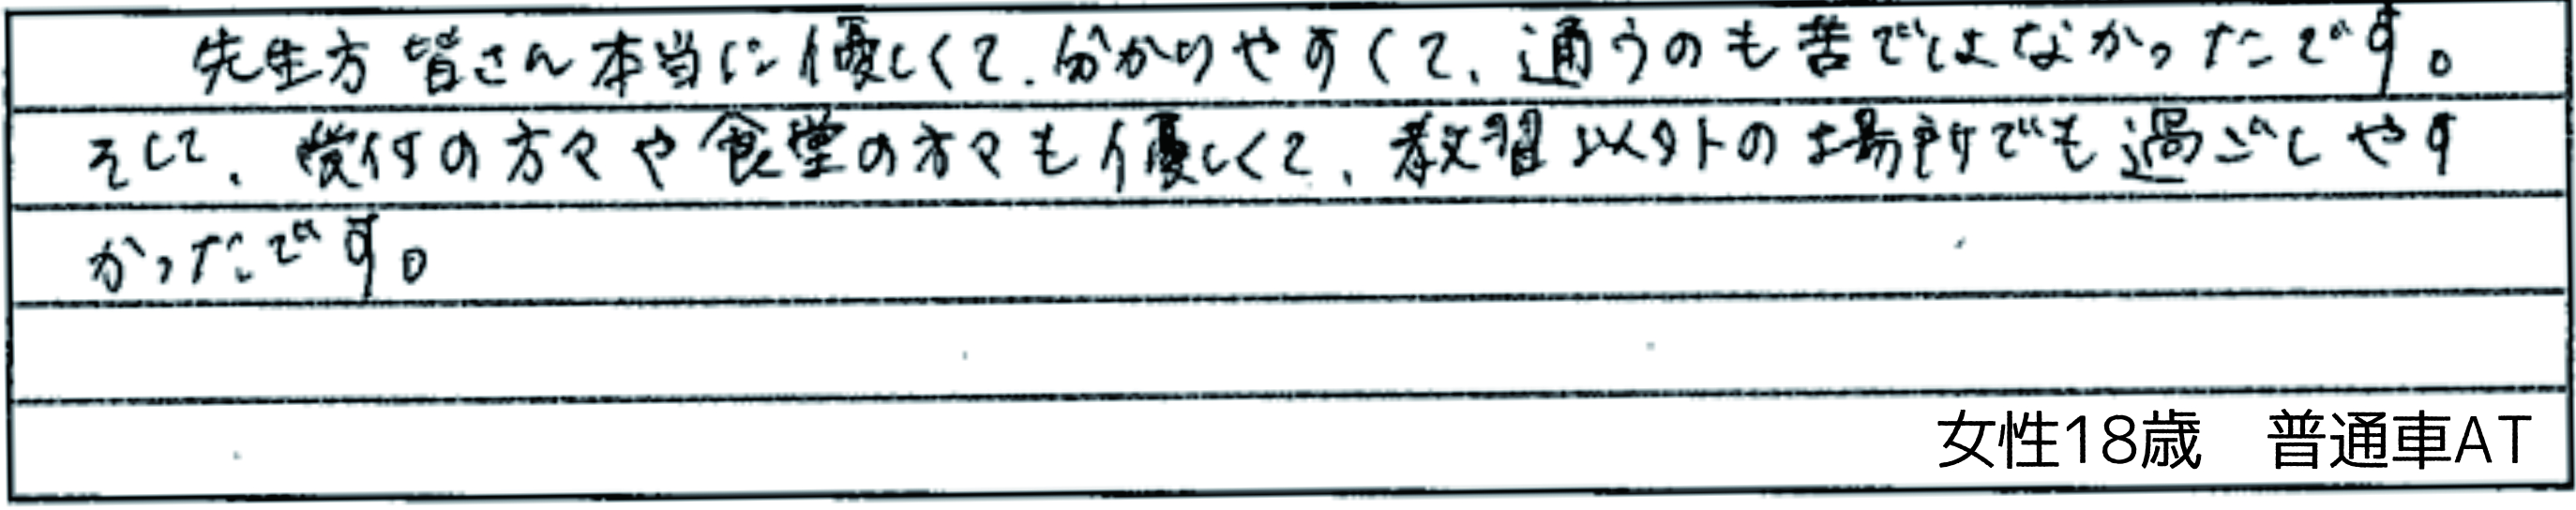 先生方皆さん本当に優しくて、分かりやすくて、通うのも苦ではなかったです。
そして、受付の方々や食堂の方々も優しくて、教習以外の場所でも過ごしやす
かったです。
女性18歳　普通車AT